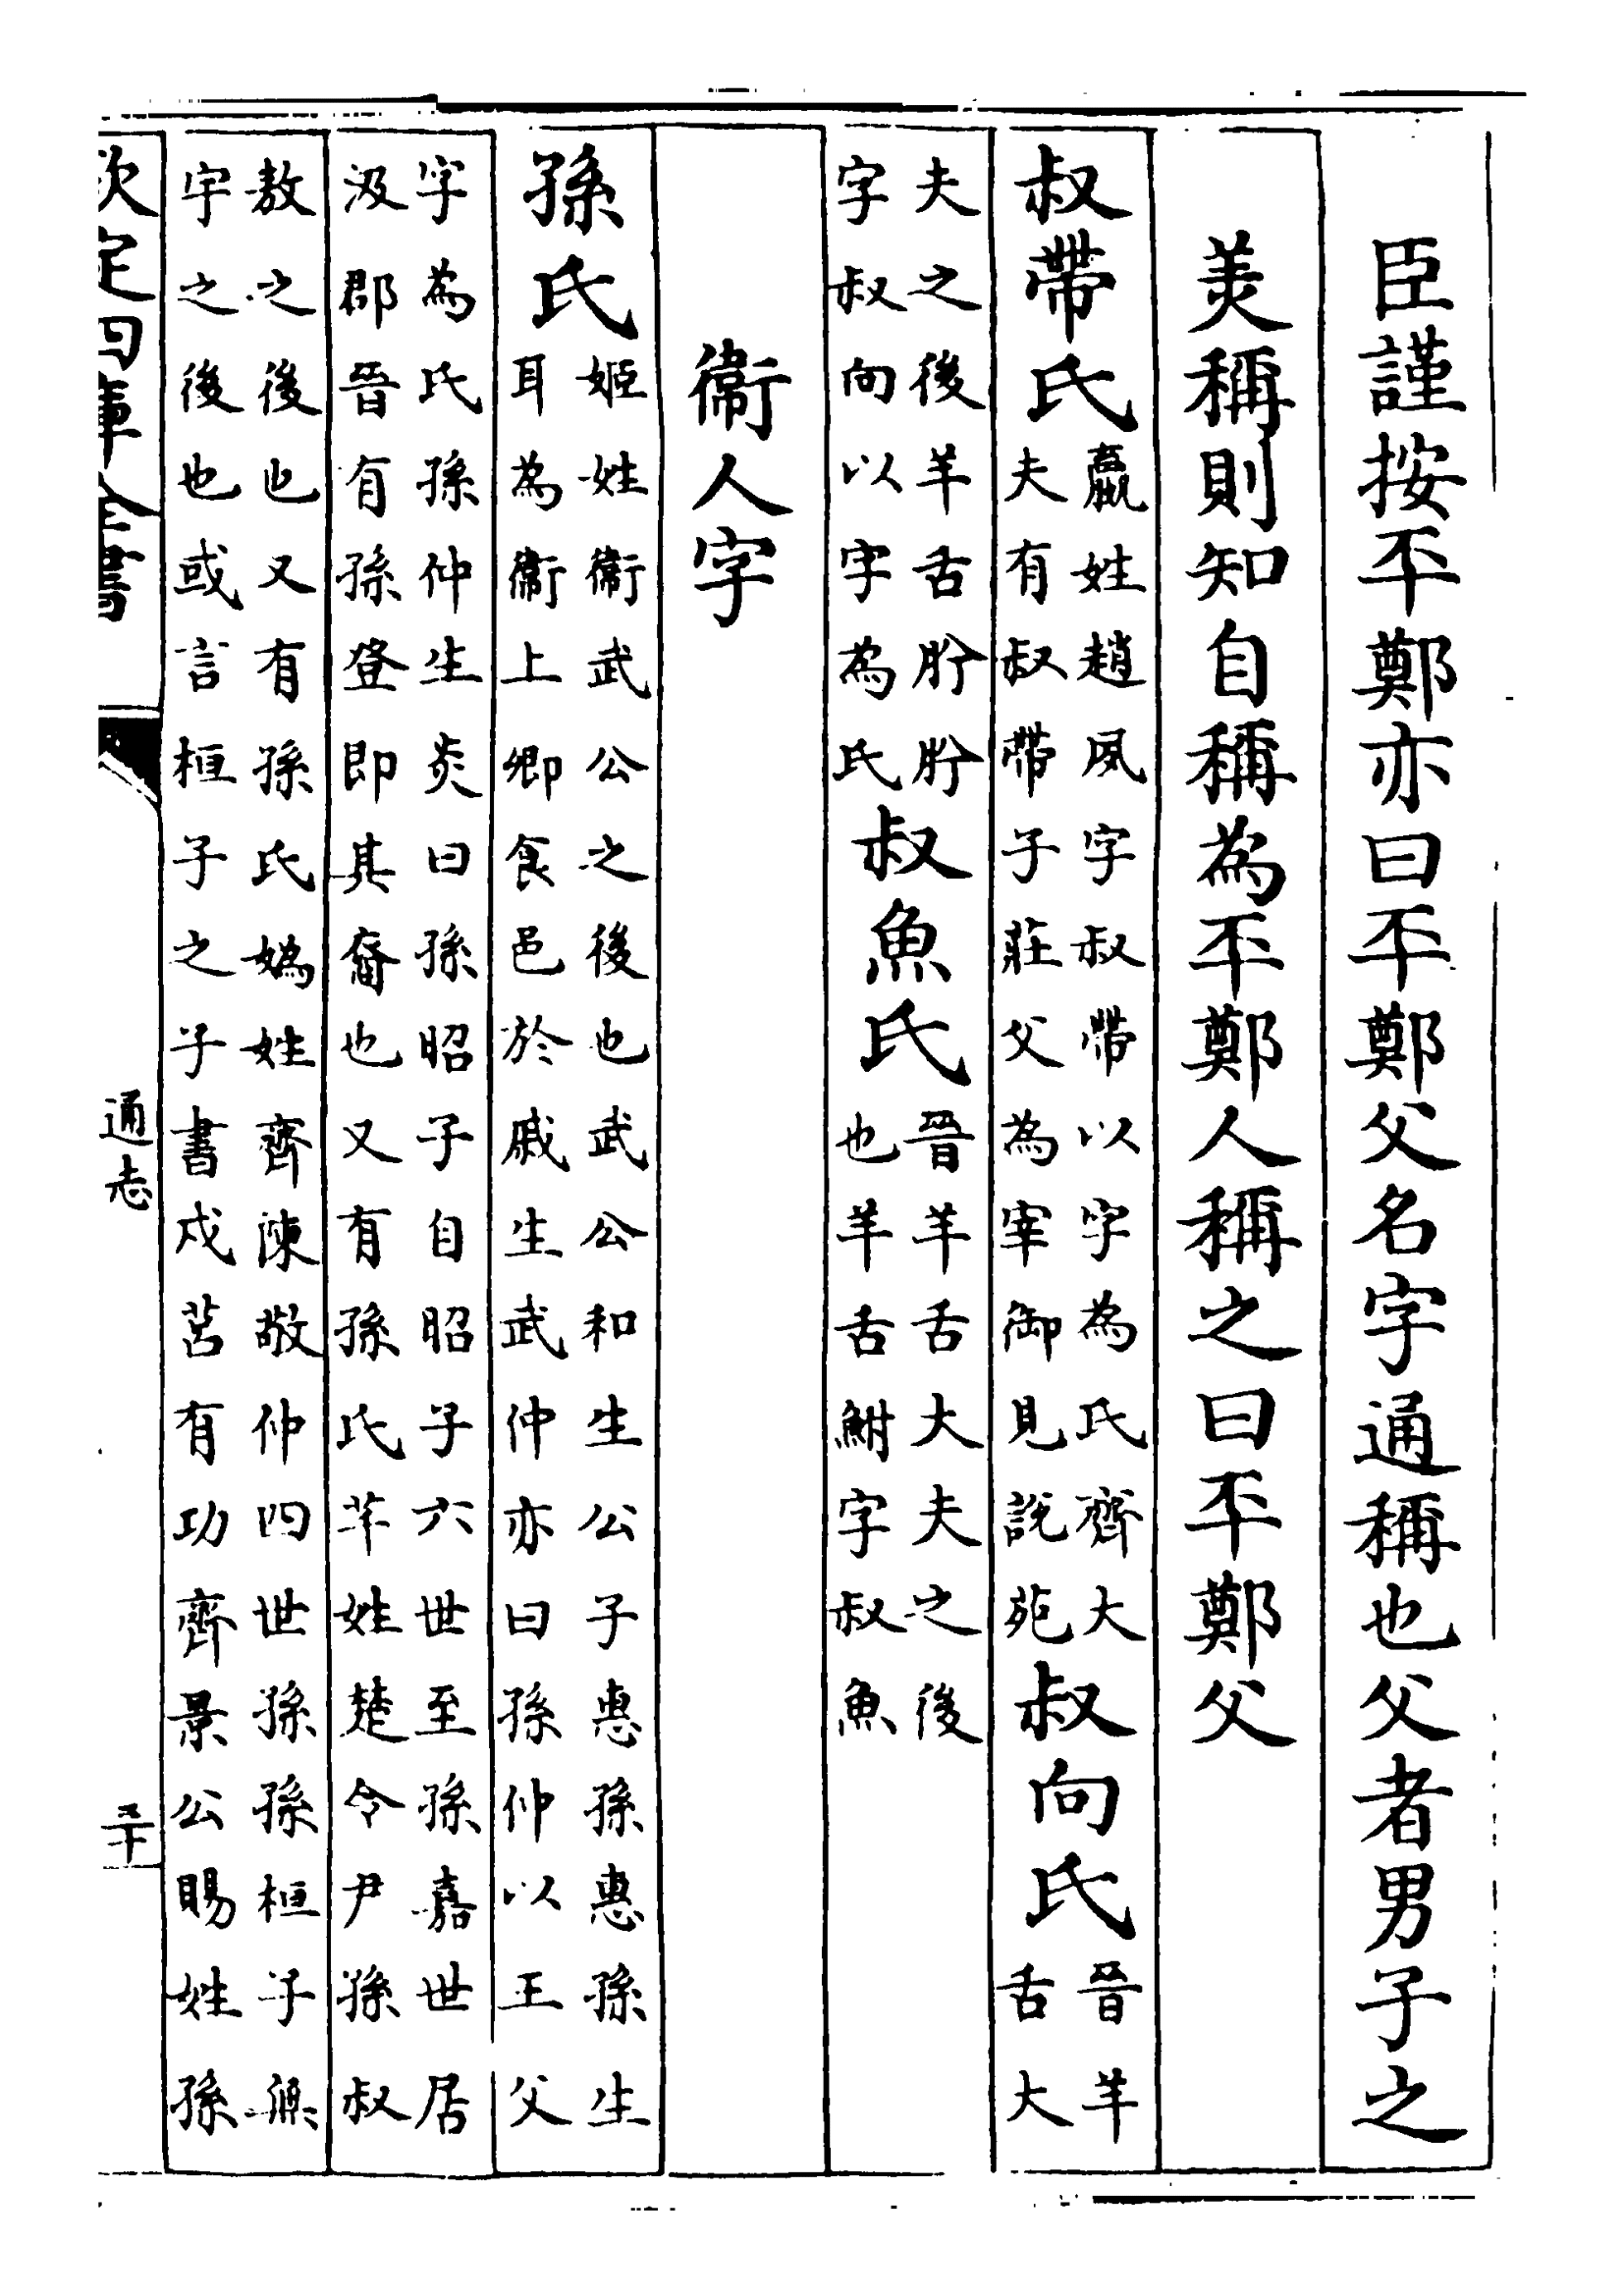 臣謹按㔻鄭亦曰㔻鄭父名字通稱也父者男子之
美稱則知自稱為㔻鄭人稱之曰㔻鄭父
叔帶氏嬴姓趙夙字叔帶以字為氏齊大夫有叔帶子莊父為宰御見說苑叔向氏晉羊舌大
夫之後羊舌肸肸字叔向以字為氏叔魚氏晉羊舌大夫之後也羊舌鮒字叔魚
衞人字
孫氏姬姓衞武公之後也武公和生公子惠孫惠孫生耳為衞上卿食邑於戚生武仲亦曰孫仲以王父
字為氏孫仲生炎曰孫昭子自昭子六世至孫嘉世居汲郡晉有孫登即其裔也又有孫氏芈姓楚令尹孫叔
敖之後也又有孫氏媯姓齊陳敬仲四世孫孫桓子無宇之後也或言桓子之子書戍莒有功齊景公賜姓孫
欽定四庫全書
通志
五十